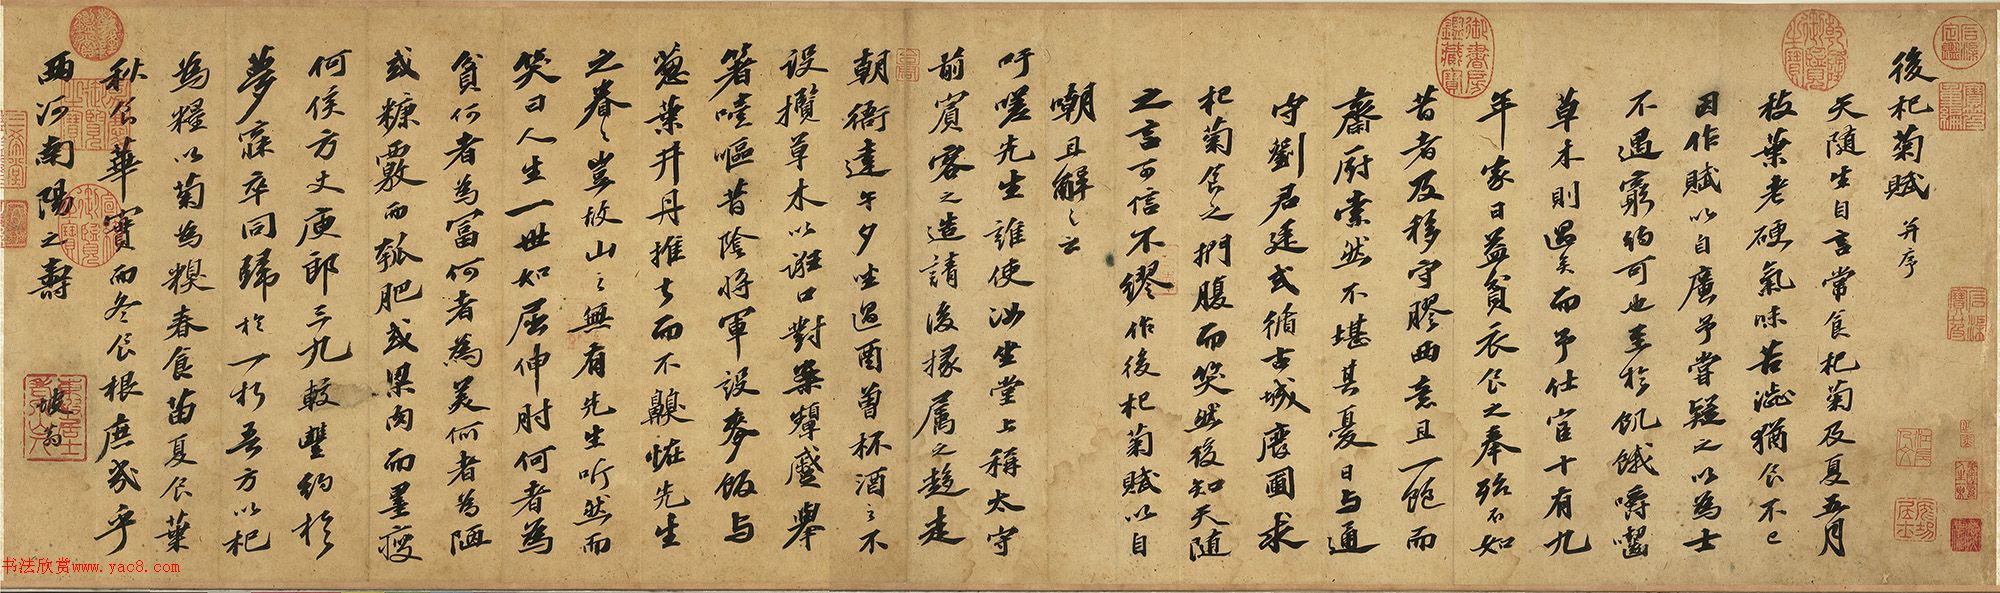 後杞菊賦 并序
天随生自言常食杞菊及夏五月
枝葉老硬氣味苦澁猶食不已
因作賦以自廣予嘗疑之以為士
不遇窮約可也至於飢餓嚼齧
草木則過矣而予仕宦十有九
年家日益貧衣食之奉殆不如
昔者及移守膠西意且一飽而
齋厨索然不堪其憂日与通
守劉君廷式循古城廢圃求
杞菊食之捫腹而笑然後知天随
之言可信不繆作後杞菊賦以自
嘲且解之云
吁嗟先生誰使汝坐堂上稱太守
前賓客之造請後掾属之趍走
朝衙達午夕坐過酉曾杯酒之不
設攬草木以誑口對案顰蹙舉
箸噎嘔昔陰將軍設麥飯与
葱葉井丹推去而不齅恠先生
之眷之豈故山之無有先生听然而
笑曰人生一世如屈伸肘何者為
貧何者為富何者為美何者為陋
或糠覈而瓠肥或梁肉而墨瘦
何侯方丈庾郎三九較豐約於
夢寐卒同歸於一朽吾方以杞
為糧以菊為糗春食苗夏食葉
秋食華實而冬食根庶幾乎
西河南陽之壽
坡翁
御書房鑑藏寶
书法欣赏www.yac8.com